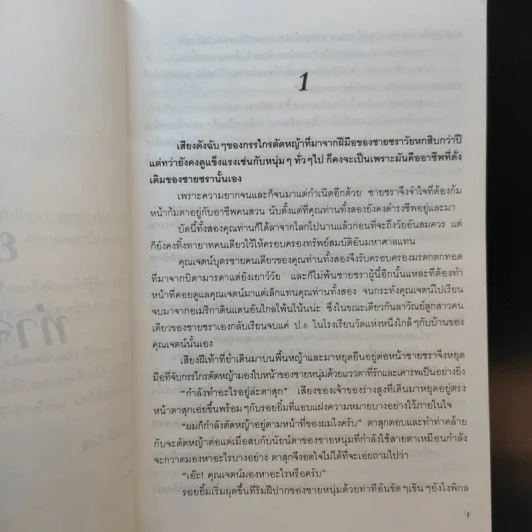 1
เสียงดังฉับๆของกรรไกรตัดหญ้าที่มาจากฝีมือของชายชราวัยหกสิบกว่าปี
แต่ทว่ายังคงดูแข็งแรงเช่นกับหนุ่มๆ ทั่วๆไป ก็คงจะเป็นเพราะมันคืออาชีพที่ดั้ง
เดิมของชายชรานั้นเอง
เพราะความยากจนและก็จนมาแต่กำเนิดอีกด้วย ชายชราจึงจำใจที่ต้องก้ม
หน้าก้มตาอยู่กับอาชีพคนสวน นับตั้งแต่ที่คุณท่านทั้งสองยังคงดำรงชีพอยู่และมา
บัดนี้ทั้งสองคุณท่านก็ได้ลาจากโลกไปนานแล้วก่อนที่จะถึงวัยอันสมควร แต่
ก็ยังคงทิ้งทายาทคนเดียวไว้ให้ครอบครองทรัพย์สมบัติอันมหาศาลแทน
คุณเจตน์บุตรชายคนเดียวของคุณท่านทั้งสองจึงรับครอบครองมรดกตกทอด
ที่มาจากบิดามารดาแต่ยังเยาว์วัย และก็ไม่พ้นชายชราผู้นี้อีกนั้นแหละที่ต้องทำ
หน้าที่คอยดูแลคุณเจตน์มาแต่เล็กแทนคุณท่านทั้งสอง จนกระทั่งคุณเจตน์ไปเรียน
จบมาจากอเมริกาดินแดนอันไกลโพ้นโน้นน่ะ ซึ่งในขณะเดียวกันลาวัณย์ลูกสาวคน
เดียวของชายชราเองกลับเรียนจบแค่ ป.๖ ในโรงเรียนวัดแห่งหนึ่งใกล้ๆกับบ้านของ
คุณเจตน์นั้นเอง
เสียงฝีเท้าที่ย่ำเดินมาบนพื้นหญ้าและมาหยุดยืนอยู่ต่อหน้าชายชราจึงหยุด
มือที่จับกรรไกรตัดหญ้ามองใบหน้าของชายหนุ่มด้วยแววตาที่รักและเคารพเป็นอย่างยิ่ง
"กำลังทำอะไรอยู่ล่ะตาสุก" เสียงของเจ้าของร่างสูงที่เดินมาหยุดอยู่ตรง
หน้าตาสุกเอ่ยขึ้นพร้อมๆกับรอยยิ้มที่แอบแฝงความหมายบางอย่างไว้ภายในใจ
"ผมก็กำลังตัดหญ้าอยู่ตามหน้าที่ของผมไงครับ" ตาสุกตอบและทำท่าคล้าย
กับจะตัดหญ้าต่อแต่เมื่อสบกับนัยน์ตาของชายหนุ่มที่กำลังใช้สายตาเหมือนกำลัง
จะกวาดมองหาอะไรบางอย่าง ตาสุกจึงอดใจไม่ได้ที่จะเอ่ยถามไปว่า
"เอ๊ะ! คุณเจตน์มองหาอะไรหรือครับ"
รอยยิ้มเริ่มผุดขึ้นที่ริมฝีปากของชายหนุ่มด้วยท่าทีอันขัดๆเขินๆยังไงพิกล